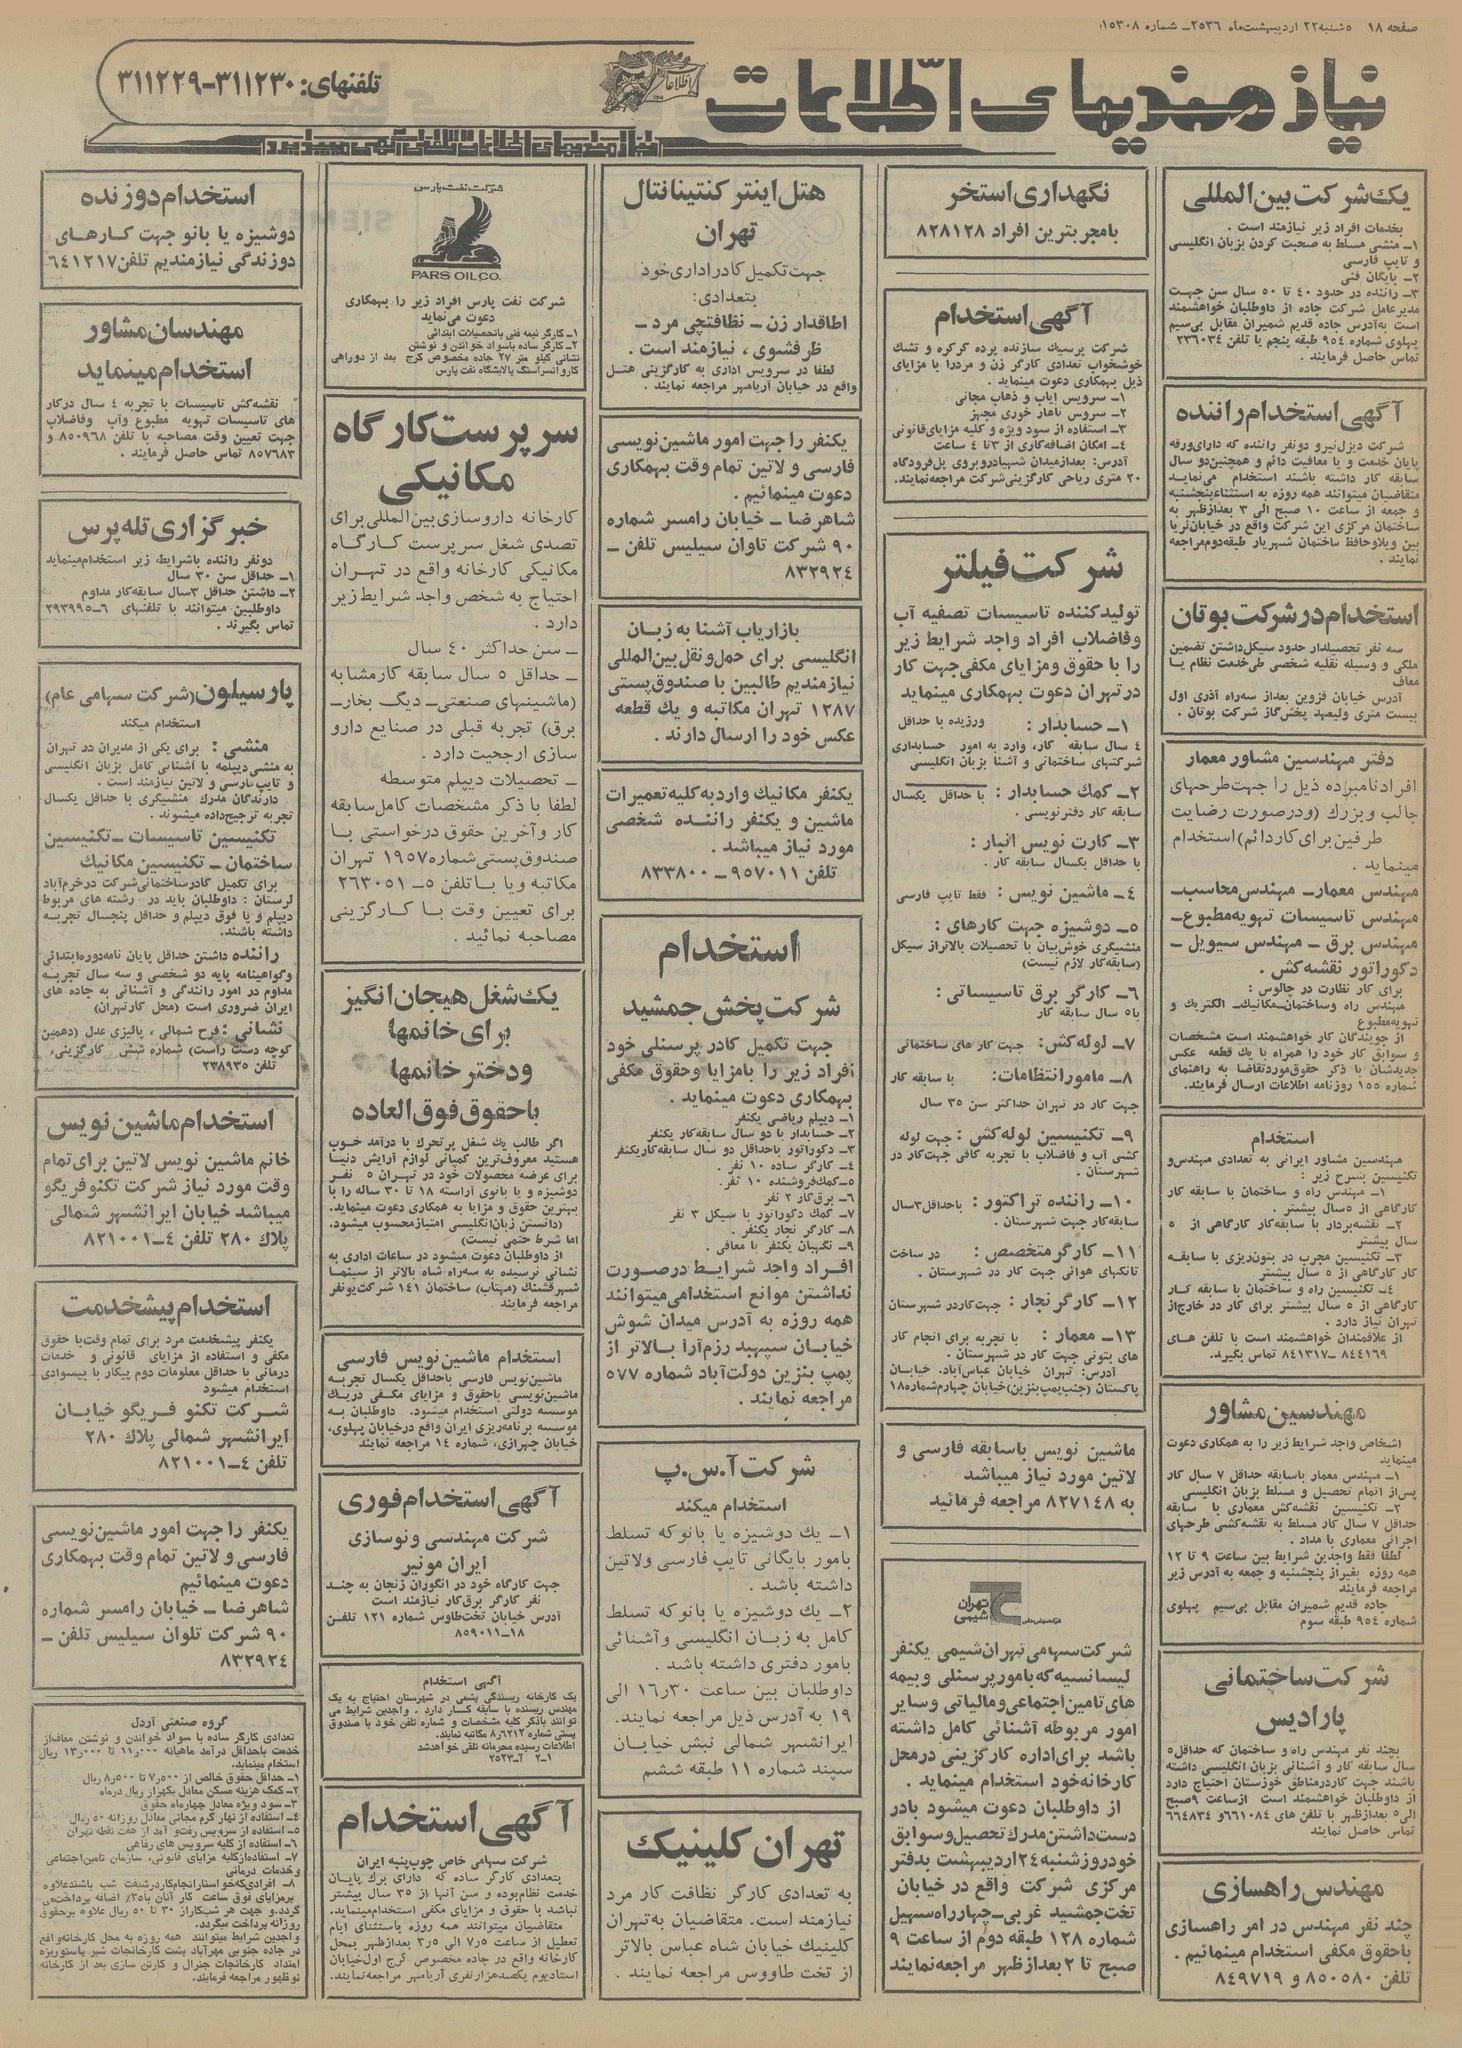 صفحه ۱۸ ۵شنبه ۲۲ اردیبهشت‌ماه ۲۵۳۶ـ شماره ۱۵۳۰۸
نیازمندیهای اطلاعات
تلفنهای: ۳۱۱۲۳۰-۳۱۱۲۲۹
نیازمندیهای اطلاعات تلفنی آگهی میپذیرد
یک شرکت بین‌المللی
بخدمات افراد زیر نیازمند است .
۱ـ منشی مسلط به صحبت کردن بزبان انگلیسی
و تایپ فارسی
۲ـ بایگان فنی
۳ـ راننده در حدود ۴۰ تا ۵۰ سال سن جهت
مدیرعامل شرکت جاده از داوطلبان خواهشمند
است به‌آدرس جاده قدیم شمیران مقابل بی‌سیم
پهلوی شماره ۹۵۴ طبقه پنجم یا تلفن ۲۳۶۰۳۴
تماس حاصل فرمایند .
آگهی استخدام راننده
شرکت دیزل‌نیرو دونفر راننده که دارای‌ورقه
پایان خدمت و یا معافیت دائم و همچنین‌دو سال
سابقه کار داشته باشند استخدام می‌نماید
متقاضیان میتوانند همه روزه به استثناءپنجشنبه
و جمعه از ساعت ۱۰ صبح الی ۳ بعدازظهر به
ساختمان مرکزی این شرکت واقع در خیابان‌ثریا
بین ویلاوحافظ ساختمان شهریار طبقه‌دوم‌مراجعه
نمایند .
استخدام در شرکت بوتان
سه نفر تحصیلدار حدود سیکل‌داشتن تضمین
ملکی و وسیله نقلیه شخصی طی‌خدمت نظام یا
معاف
آدرس خیابان قزوین بعداز سه‌راه آذری اول
بیست متری ولیعهد پخش‌گاز شرکت بوتان .
دفتر مهندسین مشاور معمار
افراد نامبرده ذیل را جهت‌طرحهای
جالب وبزرک (ودرصورت رضایت
طرفین‌برای کاردائم) استخدام
مینماید .
مهندس معمارـ مهندس‌محاسب-
مهندس تاسیسات تهویه‌مطبوع-
مهندس برق ـ مهندس سیویل -
دکوراتور نقشه‌کش .
برای کار نظارت در چالوس :
مهندس راه وساختمان-مکانیک- الکتریک و
تهویه‌مطبوع
از جویندگان کار خواهشمند است مشخصات
و سوابق کار خود را همراه با یک قطعه عکس
جدیدشان با ذکر حقوق‌موردتقاضا به راهنمای
شماره ۱۵۵ روزنامه اطلاعات ارسال فرمایند.
استخدام
مهندسین مشاور ایرانی به تعدادی مهندس‌و
تکنیسین بشرح زیر :
۱ـ مهندس راه و ساختمان با سابقه کار
کارگاهی از ۵سال بیشتر .
۲ـ نقشه‌بردار با سابقه‌کار کارگاهی از ۵
سال بیشتر
۳ـ تکنیسین مجرب در بتون‌ریزی با سابقه
کار کارگاهی از ۵ سال بیشتر
۴ـ تکنیسین راه و ساختمان با سابقه کار
کارگاهی از ۵ سال بیشتر برای کار در خارج‌از
تهران نیاز دارد .
از علاقمندان خواهشمند است با تلفن های
۸۴۴۱۶۹ ـ۸۴۱۳۱۷ تماس بگیرد.
مهندسین مشاور
اشخاص واجد شرایط زیر را به همکاری دعوت
مینماید
۱ـ مهندس معمار باسابقه حداقل ۷ سال کار
پس‌از اتمام تحصیل و مسلط بزبان انگلیسی
۲ـ تکنیسین نقشه‌کش معماری با سابقه
حداقل ۷ سال کار مسلط به نقشه‌کشی طرحهای
اجرائی معماری با مداد .
لطفا فقط واجدین شرایط بین ساعت ۹ تا ۱۲
همه روزه بغیراز پنجشنبه و جمعه به آدرس زیر
مراجعه فرمایند
جاده قدیم شمیران مقابل بی‌سیم پهلوی
شماره ۹۵۴ طبقه سوم
شرکت ساختمانی
پارادیس
بچند نفر مهندس راه‌و ساختمان که حداقل‌۵
سال سابقه کار و آشنائی بزبان انگلیسی داشته
باشند جهت کاردرمناطق خوزستان احتیاج دارد
از داوطلبان خواهشمند است ازساعت ۹صبح
الی‌۵ بعدازظهر با تلفن های ۶۶۱۰۸۴و ۶۶۴۸۳۴
تماس حاصل نمایند
مهندس راهسازی
چند نفر مهندس در امر راهسازی
باحقوق مکفی استخدام مینمائیم .
تلفن ۸۵۰۵۸۰ و ۸۴۹۷۱۹
نگهداری استخر
بامجربترین افراد ۸۲۸۱۲۸
آگهی استخدام
شرکت پرسیک سازنده پرده کرکره و تشک
خوشخواب تعدادی کارگر زن و مردرا با مزایای
ذیل بهمکاری دعوت مینماید .
۱ـ سرویس ایاب و ذهاب مجانی
۲ـ سرویس ناهار خوری مجهز
۳ـ استفاده از سود ویژه و کلیه مزایای‌قانونی
۴ـ امکان اضافه‌کاری از ۳تا ۴ ساعت
آدرس: بعدازمیدان شهیادروبروی پل‌فرودگاه
۲۰ متری ریاحی کارگزینی‌شرکت مراجعه‌نمایند.
شرکت فیلتر
تولیدکننده تاسیسات تصفیه آب
وفاضلاب افراد واجد شرایط زیر
را با حقوق ومزایای مکفی‌جهت کار
درتهران دعوت بهمکاری مینماید
۱ـ حسابدار : ورزیده با حداقل
۴ سال سابقه کار، وارد به امور حسابداری
شرکتهای ساختمانی و آشنا بزبان انگلیسی
۲ـ کمک حسابدار : با حداقل یکسال
سابقه کار دفترنویسی .
۳ـ کارت نویس انبار :
با حداقل یکسال سابقه کار .
۴ـ ماشین نویس : فقط تایپ فارسی
۵ـ دوشیزه جهت کارهای :
منشیگری خوش‌بیان با تحصیلات بالاتراز سیکل
(سابقه‌کار لازم نیست)
۶ـ کارگر برق تاسیساتی :
با۵ سال سابقه کار
۷ـ لوله‌کش: جهت کار های ساختمانی
۸ـ مامورانتظامات: با سابقه کار
جهت کار در تهران حداکثر سن ۳۵ سال
۹ـ تکنیسین لوله‌کش : جهت لوله
کشی آب و فاضلاب با تجربه کافی جهت‌کار در
شهرستان .
۱۰ـ راننده تراکتور : باحداقل‌۳سال
سابقه‌کار جهت شهرستان .
۱۱ـ کارگر متخصص : در ساخت
تانکهای هوائی جهت کار در شهرستان .
۱۲ـ کارگر نجار : جهت‌کاردر شهرستان
۱۳ـ معمار : با تجربه برای انجام کار
های بتونی جهت کار در شهرستان .
آدرس: تهران خیابان عباس‌آباد. خیابان
پاکستان (جنب‌پمپ‌بنزین)خیابان چهارم‌شماره۱۸
ماشین نویس باسابقه فارسی و
لاتین مورد نیاز میباشد
به ۸۲۷۱۴۸ مراجعه فرمائید
تهران شیمی
شرکت‌سهامی‌تهران‌شیمی یکنفر
لیسانسیه که بامورپرسنلی وبیمه
های‌تامین‌اجتماعی‌ومالیاتی وسایر
امور مربوطه آشنائی کامل داشته
باشد برای‌اداره کارگزینی درمحل
کارخانه‌خود استخدام مینماید .
از داوطلبان دعوت میشود بادر
دست‌داشتن‌مدرک‌تحصیل‌وسوابق
خودروزشنبه ۲۴اردیبهشت بدفتر
مرکزی شرکت واقع در خیابان
تخت‌جمشید غربی-چهارراه‌سهیل
شماره ۱۲۸ طبقه دوم از ساعت ۹
صبح تا ۲ بعدازظهر مراجعه‌نمایند
هتل اینتر کنتیننتال
تهران
جهت تکمیل کادراداری‌خود
بتعدادی:
اطاقدار زن ـ نظافتچی مرد -
ظرفشوی ، نیازمند است .
لطفا در سرویس اداری به کارگزینی هتل
واقع در خیابان آریامهر مراجعه نمایند .
یکنفر را جهت امور ماشین‌نویسی
فارسی و لاتین تمام وقت بهمکاری
دعوت مینمائیم .
شاهرضا ـ خیابان رامسر شماره
۹۰ شرکت تاوان سیلیس تلفن -
۸۳۲۹۲۴
بازاریاب آشنا به زبان
انگلیسی برای حمل‌ونقل‌بین‌المللی
نیازمندیم طالبین با صندوق‌پستی
۱۲۸۷ تهران مکاتبه و یک قطعه
عکس خود را ارسال دارند .
یکنفر مکانیک واردبه‌کلیه‌تعمیرات
ماشین و یکنفر راننده شخصی
مورد نیاز میباشد .
تلفن ۹۵۷۰۱۱ ـ ۸۳۳۸۰۰
استخدام
شرکت پخش جمشید
جهت تکمیل کادر پرسنلی خود
افراد زیر را بامزایا وحقوق مکفی
بهمکاری دعوت مینماید .
۱ـ دیپلم ریاضی یکنفر
۲ـ حسابدار با دو سال سابقه‌کار یکنفر
۳ـ دکوراتور باحداقل دو سال سابقه‌کاریکنفر
۴ـ کارگر ساده ۱۰ نفر .
۵ـکمک‌فروشنده ۱۰ نفر.
۶ـ برق‌کار ۲ نفر
۷ـ کمک دکوراتور با سیکل ۳ نفر
۸ـ کارگر نجار یکنفر .
۹ـ نگهبان یکنفر با معافی .
افراد واجد شرایط درصورت
نداشتن موانع استخدامی‌میتوانند
همه روزه به آدرس میدان شوش
خیابان سپهبد رزم‌آرا بالاتر از
پمپ بنزین دولت‌آباد شماره ۵۷۷
مراجعه نمایند .
شرکت آ.س.پ
استخدام میکند
۱ـ یک دوشیزه یا بانوکه تسلط
بامور بایگانی تایپ فارسی ولاتین
داشته باشد .
۲ـ یک دوشیزه یا بانوکه تسلط
کامل به زبان انگلیسی وآشنائی
بامور دفتری داشته باشد .
داوطلبان بین ساعت ۱۶٫۳۰ الی
۱۹ به آدرس ذیل مراجعه نمایند.
ایرانشهر شمالی نبش خیابان
سپند شماره ۱۱ طبقه ششم
تهران کلینیک
به تعدادی کارگر نظافت کار مرد
نیازمند است. متقاضیان به‌تهران
کلینیک خیابان شاه عباس بالاتر
از تخت طاووس مراجعه نمایند .
شرکت نفت پارس
PARS OIL CO.
شرکت نفت پارس افراد زیر را بهمکاری
دعوت می‌نماید
۱ـ کارگر نیمه فنی باتحصیلات ابتدائی
۲ـ کارگر ساده باسواد خواندن و نوشتن
نشانی کیلو متر ۲۷ جاده مخصوص کرج بعد از دوراهی
کاروانسراسنگ پالایشگاه نفت پارس
سرپرست کارگاه
مکانیکی
کارخانه داروسازی‌بین‌المللی برای
تصدی شغل سرپرست کارگاه
مکانیکی کارخانه واقع در تهران
احتیاج به شخص واجد شرایط زیر
دارد .
ـ سن حداکثر ۴۰ سال
ـ حداقل ۵ سال سابقه کارمشابه
(ماشینهای صنعتی- دیگ بخار-
برق) تجربه قبلی در صنایع دارو
سازی ارجحیت دارد .
ـ تحصیلات دیپلم متوسطه
لطفا با ذکر مشخصات کامل‌سابقه
کار وآخرین حقوق درخواستی با
صندوق‌پستی‌شماره۱۹۵۷ تهران
مکاتبه ویا باتلفن ۵ـ ۲۶۳۰۵۱
برای تعیین وقت با کارگزینی
مصاحبه نمائید .
یک شغل هیجان انگیز
برای خانمها
ودختر خانمها
باحقوق فوق العاده
اگر طالب یک شغل پرتحرک با درآمد خوب
هستید معروف‌ترین کمپانی لوازم آرایش دنیا
برای عرضه محصولات خود در تهران ۵ نفر
دوشیزه و یا بانوی آراسته ۱۸ تا ۳۰ ساله را با
بهترین حقوق و مزایا به همکاری دعوت مینماید.
(دانستن زبان‌انگلیسی امتیازمحسوب میشود،
اما شرط حتمی نیست)
از داوطلبان دعوت میشود در ساعات اداری به
نشانی نرسیده به سه‌راه شاه بالاتر از سینما
شهرقشنگ (مهتاب) ساختمان ۱۴۱ شرکت‌یونفر
مراجعه فرمایند
استخدام ماشین نویس فارسی
ماشین‌نویس فارسی باحداقل یکسال تجربه
ماشین‌نویسی باحقوق و مزایای مکفی دریک
موسسه دولتی استخدام میشود. داوطلبان به
موسسه برنامه‌ریزی ایران واقع درخیابان پهلوی،
خیابان چهرازی، شماره ۱۴ مراجعه نمایند
آگهی استخدام فوری
شرکت مهندسی ونوسازی
ایران مونیر
جهت کارگاه خود در انگوران زنجان به چند
نفر کارگر برق‌کار نیازمند است
آدرس خیابان تخت‌طاوس شماره ۱۲۱ تلفن
۱۸-۸۵۹۰۱۱
آگهی استخدام
یک کارخانه ریسندگی پشمی در شهرستان احتیاج به یک
مهندس ریسنده با سابقه کار دارد . واجدین شرایط می
توانند باذکر کلیه مشخصات و شماره تلفن خود با صندوق
پستی شماره ۸٫۶۲۱۲ مکاتبه نمایند.
اطلاعات رسیده محرمانه تلقی خواهدشد
۱ـ۲ آ-۲۵۲۳
آگهی استخدام
شرکت سهامی خاص چوب‌پنبه ایران
بتعدادی کارگر ساده که دارای برک پایان
خدمت نظام‌بوده و سن آنها از ۳۵ سال بیشتر
نباشد با حقوق و مزایای مکفی استخدام‌مینماید.
متقاضیان میتوانند همه روزه باستثنای ایام
تعطیل از ساعت ۷٫۵ الی ۳٫۵ بعدازظهر بمحل
کارخانه واقع در جاده مخصوص کرج اول‌خیابان
استادیوم یکصدهزارنفری آریامهر مراجعه‌نمایند.
استخدام دوزنده
دوشیزه یا بانو جهت کارهای
دوزندگی نیازمندیم تلفن ۶۴۱۲۱۷
مهندسان مشاور
استخدام مینماید
نقشه‌کش تاسیسات با تجربه ۴ سال درکار
های تاسیسات تهویه مطبوع وآب وفاضلاب
جهت تعیین وقت مصاحبه با تلفن ۸۵۰۹۶۸ و
۸۵۷۶۸۳ تماس حاصل فرمایند .
خبرگزاری تله‌پرس
دونفر راننده باشرایط، زیر استخدام‌مینماید
۱ـ حداقل سن ۳۰ سال
۲ـ داشتن حداقل ۳سال سابقه‌کار مداوم
داوطلبین میتوانند با تلفنهای ۶ـ۲۹۳۹۹۵
تماس بگیرند .
پارسیلون(شرکت سهامی عام)
استخدام میکند
منشی : برای یکی از مدیران در تهران
به منشی دیپلمه با آشنائی کامل بزبان انگلیسی
و تایپ‌فارسی و لاتین نیازمند است .
دارندگان مدرک منشیگری با حداقل یکسال
تجربه ترجیح‌داده میشوند .
تکنیسین تاسیسات ـ تکنیسین
ساختمان ـ تکنیسین مکانیک
برای تکمیل کادرساختمانی‌شرکت درخرم‌آباد
لرستان : داوطلبان باید در رشته های مربوط
دیپلم و یا فوق دیپلم و حداقل پنجسال تجربه
داشته باشند.
راننده داشتن حداقل پایان نامه‌دوره‌ابتدائی
وگواهینامه پایه دو شخصی و سه سال تجربه
مداوم در امور رانندگی و آشنائی به جاده های
ایران ضروری است (محل کارتهران)
نشانی : فرح شمالی ، پالیزی عدل (دهمین
کوچه دست راست) شماره شش کارگزینی،
تلفن ۲۳۸۹۳۵
استخدام ماشین نویس
خانم ماشین نویس لاتین برای‌تمام
وقت مورد نیاز شرکت تکنوفریگو
میباشد خیابان ایرانشهر شمالی
پلاک ۲۸۰ تلفن ۴ـ۸۲۱۰۰۱
استخدام پیشخدمت
یکنفر پیشخدمت مرد برای تمام وقت‌با حقوق
مکفی و استفاده از مزایای قانونی و خدمات
درمانی با حداقل معلومات دوم پیکار با بیسوادی
استخدام میشود
شرکت تکنو فریگو خیابان
ایرانشهر شمالی پلاک ۲۸۰
تلفن ۴ـ۸۲۱۰۰۱
یکنفر را جهت امور ماشین‌نویسی
فارسی و لاتین تمام وقت بهمکاری
دعوت مینمائیم
شاهرضا ـ خیابان رامسر شماره
۹۰ شرکت تلوان سیلیس تلفن -
۸۳۲۹۲۴
گروه صنعتی آردل
تعدادی کارگر ساده با سواد خواندن و نوشتن معاف‌از
خدمت باحداقل درآمد ماهیانه ۱۱٫۰۰۰ تا ۱۳٫۰۰۰ ریال
استخدام مینماید.
۱ـ حداقل حقوق خالص از ۷٫۵۰۰ تا ۸٫۵۰۰ ریال
۲ـ کمک هزینه مسکن معادل یکهزار ریال درماه
۳ـ سود ویژه معادل چهارماه حقوق
۴ـ استفاده از نهار گرم مجانی معادل روزانه ۵۰ ریال
۵ـ استفاده از سرویس رفت‌و آمد از هفت نقطه تهران
۶ـ استفاده از کلیه سرویس های رفاهی
۷ـ استفاده‌ازکلیه مزایای قانونی، سازمان تامین‌اجتماعی
وخدمات درمانی
۸ـ افرادی‌که‌خواستارانجام‌کاردرشیفت شب باشندعلاوه
برمزایای فوق ساعت کار آنان با۳۵٪ اضافه پرداخت‌می
گردد.و جهت هر شب‌کاراز ۳۰ تا ۵۰ ریال علاوه برحقوق
روزانه پرداخت میگردد.
واجدین شرایط میتوانند همه روزه به محل کارخانه‌واقع
در جاده جنوبی مهرآباد پشت کارخانجات شیر پاستوریزه
امتداد کارخانجات جنرال و کارتن سازی بعد از کارخانه
نوظهور مراجعه فرمایند.